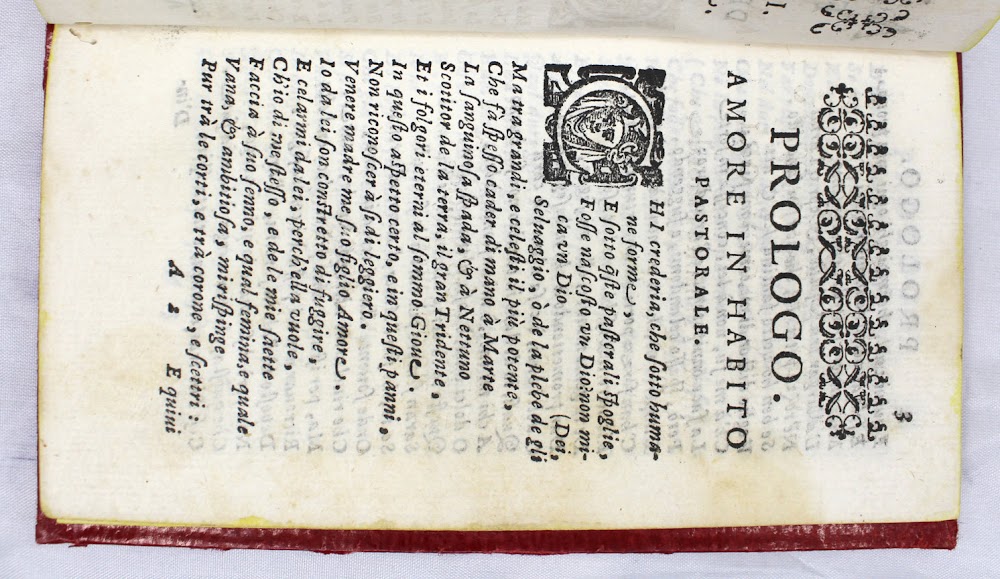 3
PROLOGO.
AMORE IN HABITO
PASTORALE.
CHI crederia, che ſotto huma-
ne forme,
E ſotto q̃ſte paſtorali ſpoglie,
Foſſe naſcoſto vn Dio: non mi-
ca vn Dio (Dei,
Seluaggio, ò de la plebe de gli
Ma tra grandi, e celeſti il più potente,
Che fà ſpeſſo cader di mano à Marte
La ſanguinoſa ſpada, & à Nettuno
Scotitor de la terra, il gran Tridente,
Et i folgori eterni al ſommo Gioue.
In queſto aſpetto certo, e in queſti panni,
Non riconoſcerà ſì di leggiero.
Venere madre me ſuo figlio Amore.
Io da lei ſon conſtretto di fuggire,
E celarmi da lei, perch'ella vuole,
Ch'io di me ſteſſo, e de le mie ſaette
Faccia à ſuo ſenno, e qual femina, e quale
Vana, & ambitioſa, mi riſpinge
Pur trà le corti, e trà corone, e ſcettri:
A 2 E quiui